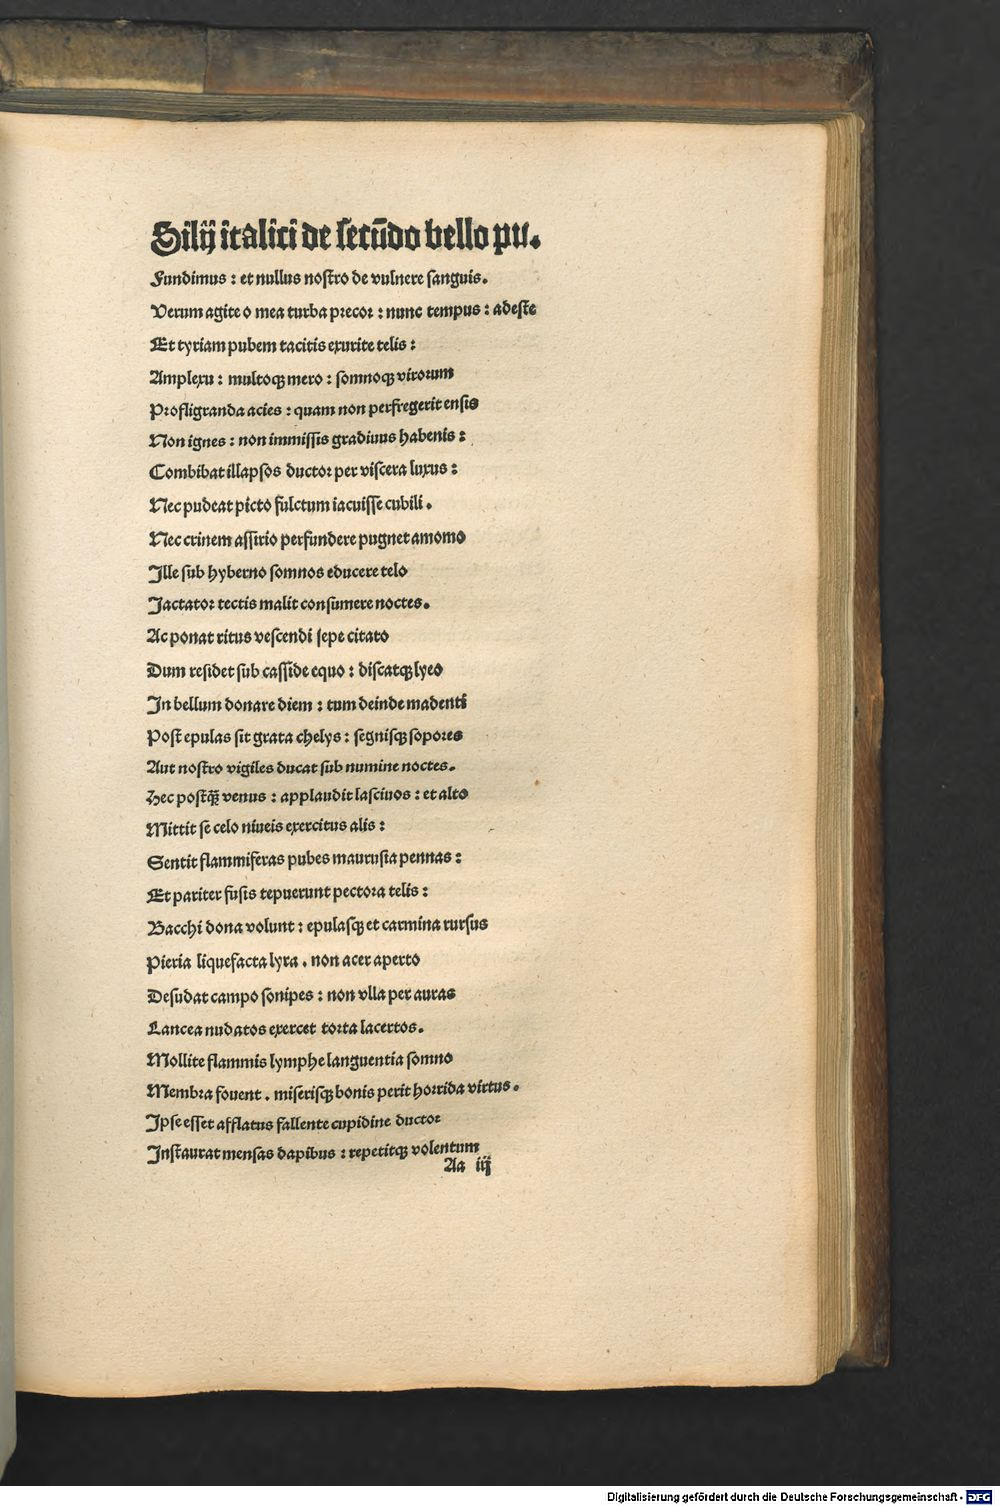 Silij italici de secūdo bello pu.
Fundimus : et nullus nostro de vulnere sanguis.
Verum agite o mea turba precor : nunc tempus : adeste
Et tyriam pubem tacitis exurite telis :
Amplexu : multoqꝫ mero : somnoqꝫ virorum
Profligranda acies : quam non perfregerit ensis
Non ignes : non immissis gradiuus habenis :
Combibat illapsos ductor per viscera luxus :
Nec pudeat picto fulctum iacuisse cubili .
Nec crinem assirio perfundere pugnet amomo
Ille sub hyberno somnos educere telo
Iactator tectis malit consumere noctes.
Ac ponat ritus vescendi sepe citato
Dum residet sub casside equo : discatqꝫ lyeo
In bellum donare diem : tum deinde madenti
Post epulas sit grata chelys : segnisqꝫ sopores
Aut nostro vigiles ducat sub numine noctes.
Hec postqꝫ̄ venus : applaudit lasciuos : et alto
Mittit se celo niueis exercitus alis :
Sentit flammiferas pubes maurusia pennas :
Et pariter fusis tepuerunt pectora telis :
Bacchi dona volunt : epulasqꝫ et carmina rursus
Pieria liquefacta lyra . non acer aperto
Desudat campo sonipes : non vlla per auras
Lancea nudatos exercet torta lacertos.
Mollite flammis lymphe languentia somno
Membra fouent . miserisqꝫ bonis perit horrida virtus.
Ipse esset afflatus fallente cupidine ductor
Instaurat mensas dapibus : repetitqꝫ volentum
Aa iij
Digitalisierung gefördert durch die Deutsche Forschungsgemeinschaft - DFG